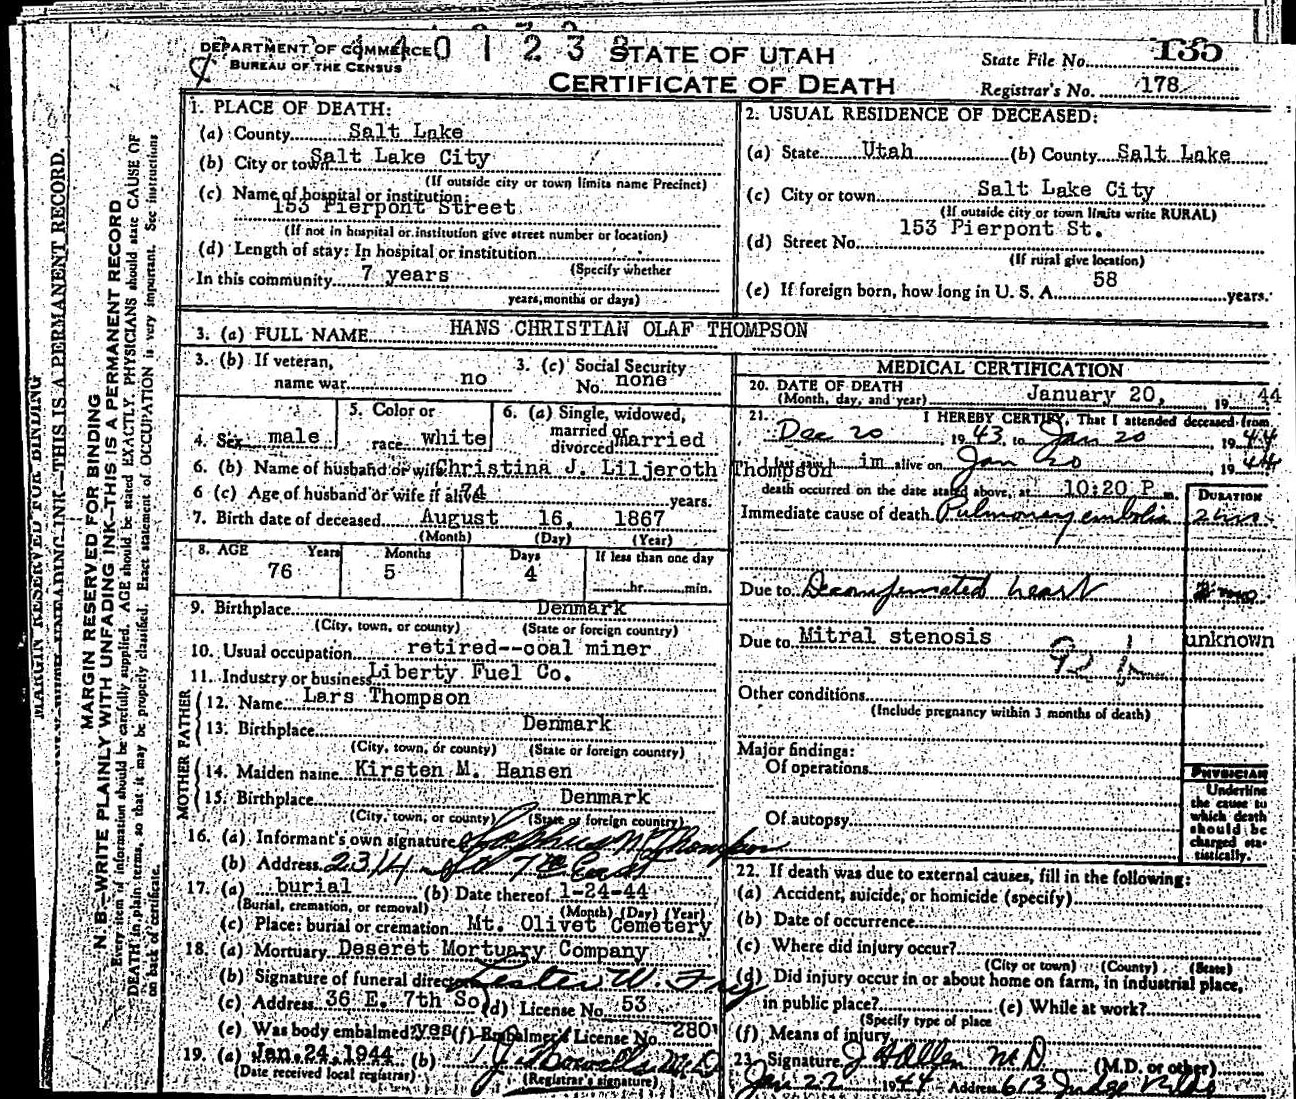 DEPARTMENT OF COMMERCE
BUREAU OF THE CENSUS
STATE OF UTAH
CERTIFICATE OF DEATH
State File No. 135
Registrar's No. 178
MARGIN RESERVED FOR BINDING
THIS IS A PERMANENT RECORD.
MARGIN RESERVED FOR BINDING
N. B.—WRITE PLAINLY WITH UNFADING INK—THIS IS A PERMANENT RECORD
Every item of information should be carefully supplied. AGE should be stated EXACTLY. PHYSICIANS should state CAUSE OF
DEATH in plain terms, so that it may be properly classified. Exact statement of OCCUPATION is very important. See instructions
on back of certificate.
1. PLACE OF DEATH:
(a) County Salt Lake
(b) City or town Salt Lake City
(If outside city or town limits name Precinct)
(c) Name of hospital or institution:
153 Pierpont Street
(If not in hospital or institution give street number or location)
(d) Length of stay: In hospital or institution
(Specify whether
In this community 7 years
years, months or days)
2. USUAL RESIDENCE OF DECEASED:
(a) State Utah (b) County Salt Lake
(c) City or town Salt Lake City
(If outside city or town limits write RURAL)
(d) Street No. 153 Pierpont St.
(If rural give location)
(e) If foreign born, how long in U. S. A. 58 years.
3. (a) FULL NAME HANS CHRISTIAN OLAF THOMPSON
3. (b) If veteran,
name war no
3. (c) Social Security
No. none
4. Sex male
5. Color or
race white
6. (a) Single, widowed,
married or
divorced married
6. (b) Name of husband or wife Christina J. Liljeroth Thompson
6 (c) Age of husband or wife if alive 74 years.
7. Birth date of deceased August 16, 1867
(Month) (Day) (Year)
8. AGE Years Months Days If less than one day
76 5 4 hr. min.
9. Birthplace Denmark
(City, town, or county) (State or foreign country)
10. Usual occupation retired--coal miner
11. Industry or business Liberty Fuel Co.
FATHER
12. Name Lars Thompson
13. Birthplace Denmark
(City, town, or county) (State or foreign country)
MOTHER
14. Maiden name Kirsten M. Hansen
15. Birthplace Denmark
(City, town, or county) (State or foreign country)
16. (a) Informant's own signature Sophus N Thompson
(b) Address 2314 So 7th East
17. (a) burial (b) Date thereof 1-24-44
(Burial, cremation, or removal) (Month) (Day) (Year)
(c) Place: burial or cremation Mt. Olivet Cemetery
18. (a) Mortuary Deseret Mortuary Company
(b) Signature of funeral director Lester W.
(c) Address 36 E. 7th So. (d) License No. 53
(e) Was body embalmed? yes (f) Embalmer's License No. 280
19. (a) Jan. 24, 1944 (b) M D
(Date received local registrar) (Registrar's signature)
MEDICAL CERTIFICATION
20. DATE OF DEATH
(Month, day, and year) January 20, 19 44
21. I HEREBY CERTIFY, That I attended deceased from
Dec 20 1943 to Jan 20 1944
im alive on Jan 20 1944
death occurred on the date stated above, at 10:20 P m.
DURATION
Immediate cause of death Pulmonary embolia
Due to Decompensated heart
Due to Mitral stenosis unknown
Other conditions
(Include pregnancy within 3 months of death)
Major findings:
Of operations
Of autopsy
PHYSICIAN
Underline
the cause to
which death
should be
charged sta-
tistically.
22. If death was due to external causes, fill in the following:
(a) Accident, suicide, or homicide (specify)
(b) Date of occurrence
(c) Where did injury occur?
(City or town) (County) (State)
(d) Did injury occur in or about home on farm, in industrial place,
in public place? (e) While at work?
(Specify type of place
(f) Means of injury
23. Signature J Allen M D (M.D. or other)
Jan 22 1944 Address 613 Judge Bldg